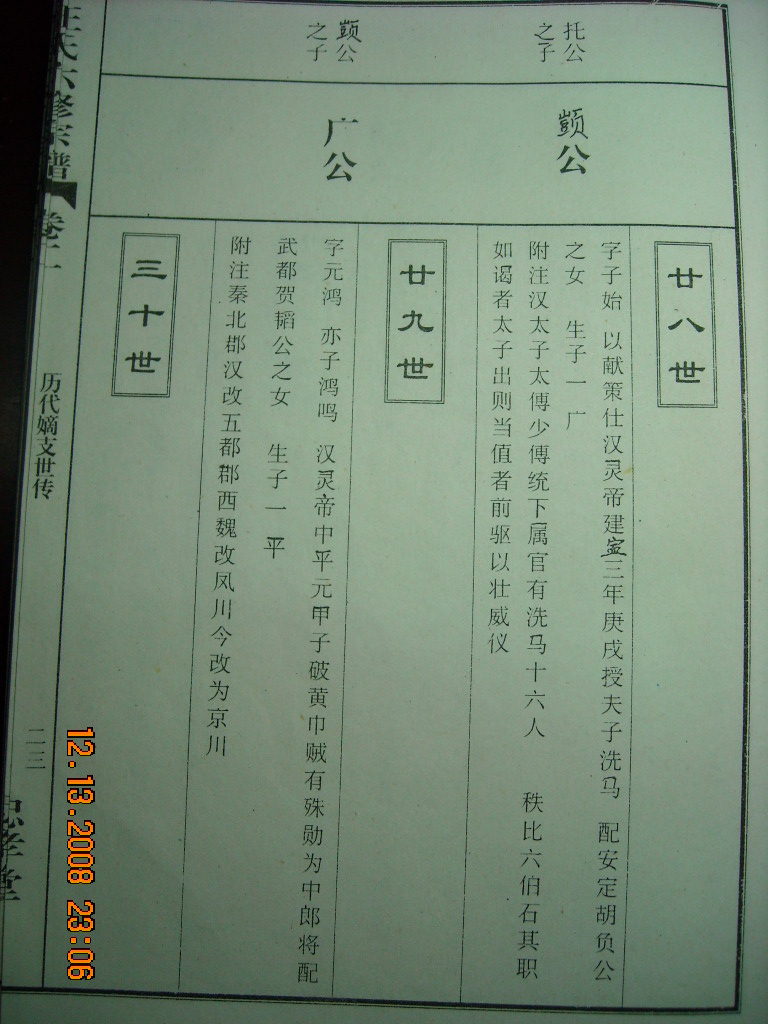 托公
之子
顗公
廿八世
字子始 以献策仕汉灵帝建寍三年庚戌授夫子洗马 配安定胡负公
之女 生子一广
附注汉太子太傅少傅统下属官有洗马十六人 秩比六伯石其职
如谒者太子出则当值者前驱以壮威仪
顗公
之子
广公
廿九世
字元鸿 亦子鸿鸣 汉灵帝中平元甲子破黄巾贼有殊勋为中郎将配
武都贺韬公之女 生子一平
附注秦北郡汉改五都郡西魏改凤川今改为京川
三十世
汪氏六修宗谱 卷二
历代嫡支世传
二三
忠孝堂
12.13.2008 23:06